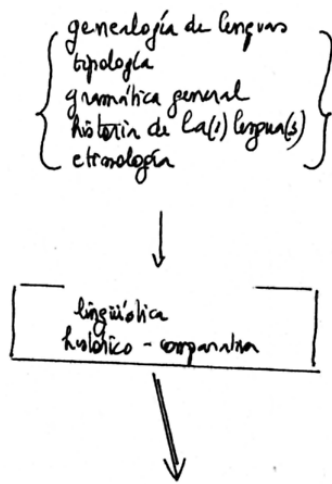 genealogía de lenguas
tipología
gramática general
historia de la(s) lengua(s)
etimología
lingüística
histórico-comparativa